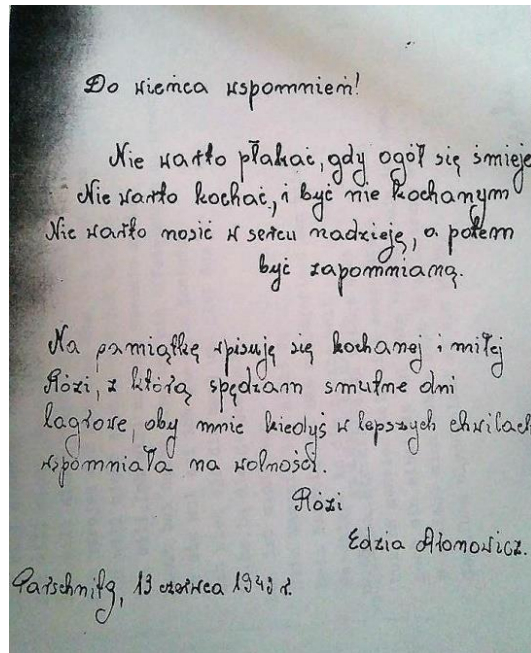 Do wieńca wspomnień!
Nie warto płakać, gdy ogół się śmieje
Nie warto kochać, i być nie kochanym
Nie warto nosić w sercu nadzieję, a potem
być zapomnianą.
Na pamiątkę wpisuję się kochanej i miłej
Rózi, z którą spędzam smutne dni
lagrowe, oby mnie kiedyś w lepszych chwilach
wspomniała na wolności.
Rózi
Edzia
Parschnitz, 13 czerwca 1943 r.